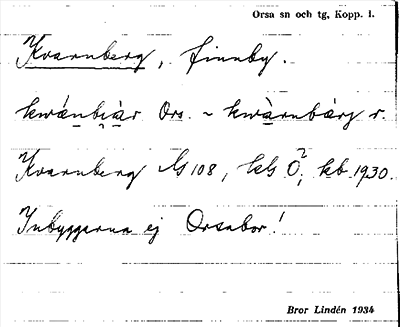 Orsa sn och tg, Kopp. l.
Kvarnberg, finnby.
kwánbiàr Ors. ~ kwàrnbárj r.
Kvarnberg G 108, kls Ö², kb 1930.
Inbyggarna ej Orsabor!
Bror Lindén 1934